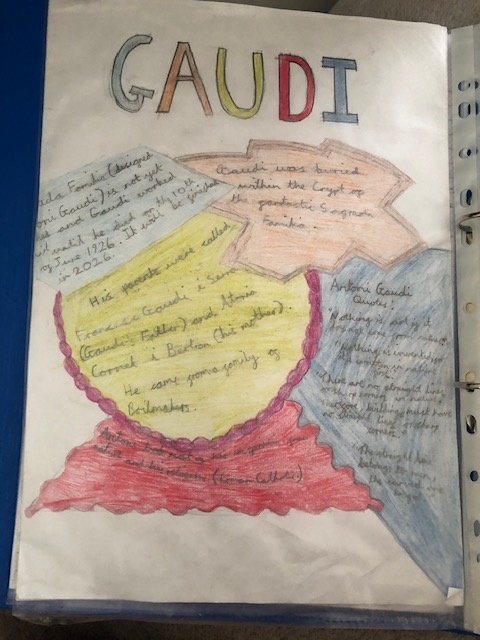 GAUDI
ada Familia (designed
oni Gaudi) is not yet
and Gaudi worked
it until he died on the 10th
of June 1926. It will be finished
in 2026.
Gaudi was buried
within the Crypt of
the fantastic Sagrada
Familia.
His parents were called
Francisco Gaudi i Serra
(Gaudi's Father) and
Cornet i Bertran (his mother).
He came from a family of
Boilmakers.
Antoni Gaudi
Quotes:
"Nothing is art if it
does not come from nature."
"Nothing is invented, for
it's written in nature
"There are no straight lines
or sharp corners in nature.
Therefore, buildings must have
no straight lines or sharp
corners."
The straight line
belongs to men,
the curved one
to God.
Antoni took most of his inspiration from
nature and his religion (Roman Catholic)